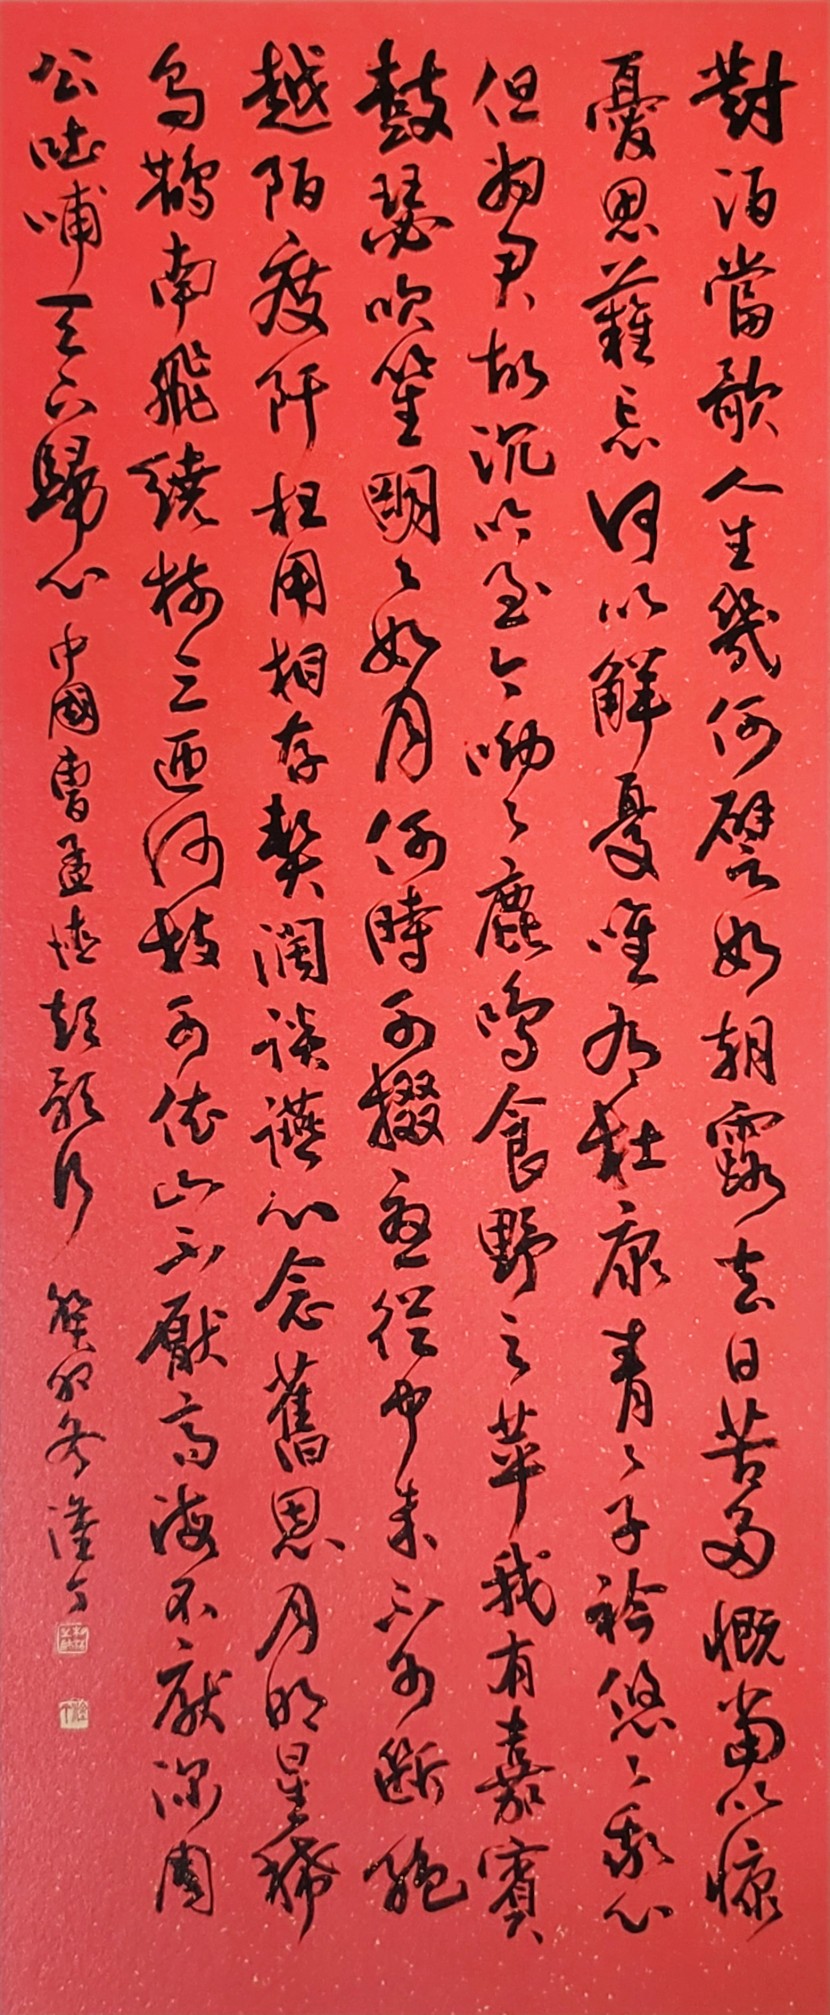 對酒當歌人生幾何譬如朝露去日苦多慨當以慷
憂思難忘何以解憂唯有杜康青々子衿悠々我心
但為君故沉吟至今呦々鹿鳴食野之苹我有嘉賓
鼓瑟吹笙明々如月何時可掇憂從中來不可斷絕
越陌度阡枉用相存契闊談讌心念舊恩月明星稀
烏鵲南飛繞樹三匝何枝可依山不厭高海不厭深周
公吐哺天下歸心中國曹孟德短歌行 癸卯冬